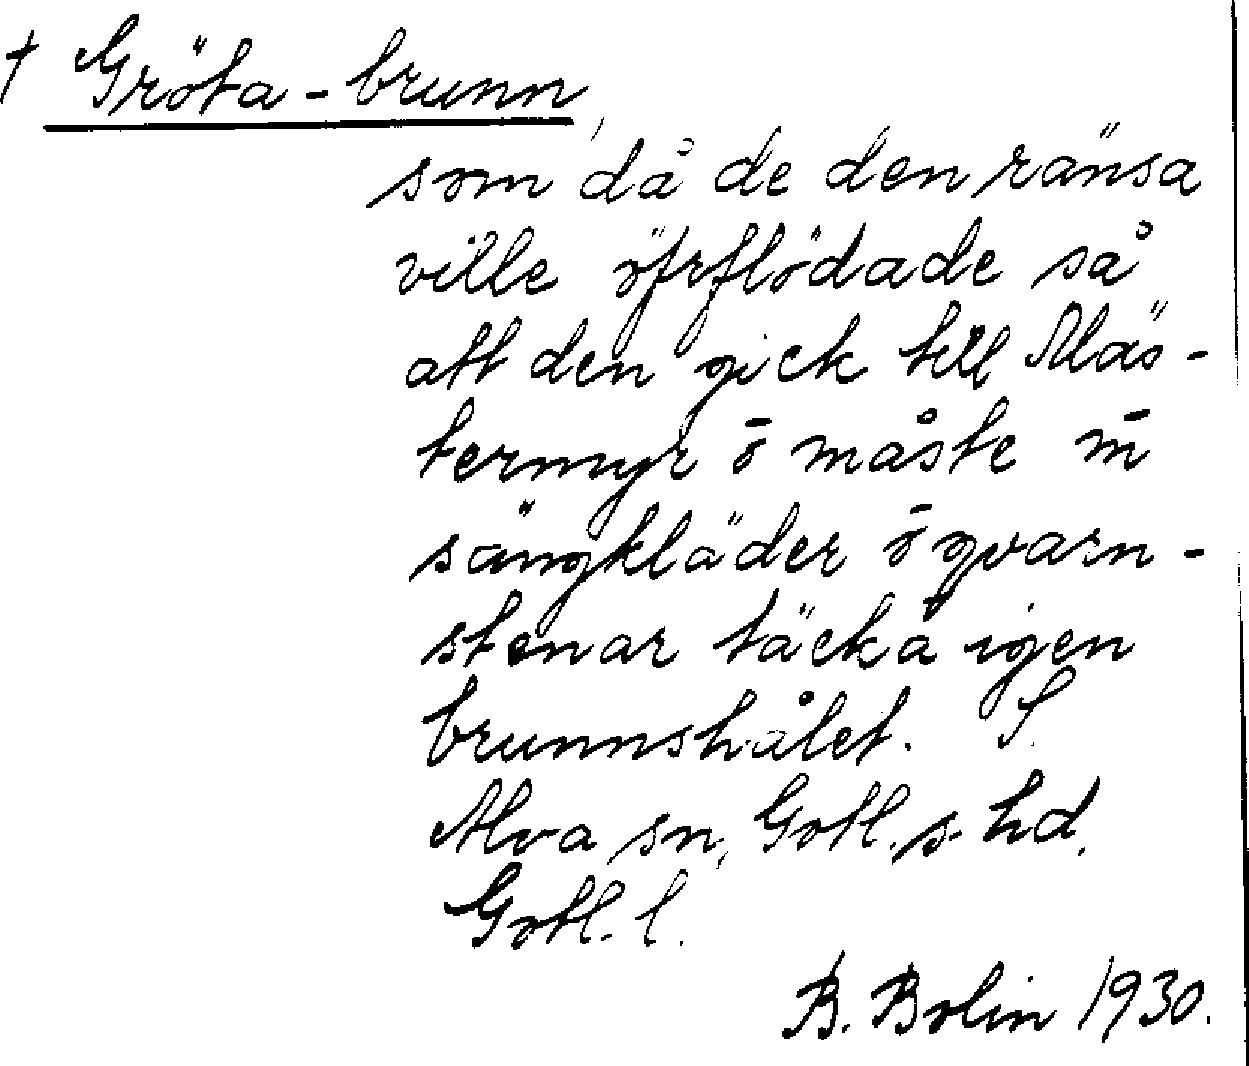 † Gröta-brunn,
som då de den ränsa
ville öfrflödade så
att den gick till Mäs-
termyr ō måste m̄
sängkläder ō qvarn-
stenar täcka igen
brunnshålet. S.
Alva sn, Gotl. s. hd.
Gotl. l.
B. Bolin 1930.